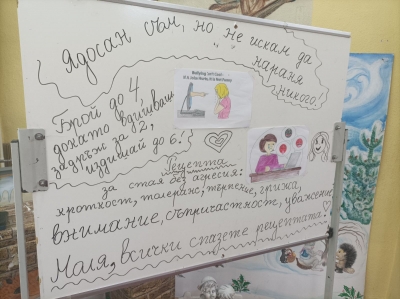 Ядосан съм, но не искам да
нараня
никого!
Брой до 4,
докато вдишваш
задръж за 2,
издишай до 6!
Рецепта
за стая без агресия:
кроткост, толеранс, търпение, грижа,
внимание, съпричастност, уважение
Моля, всички спазете рецептата!